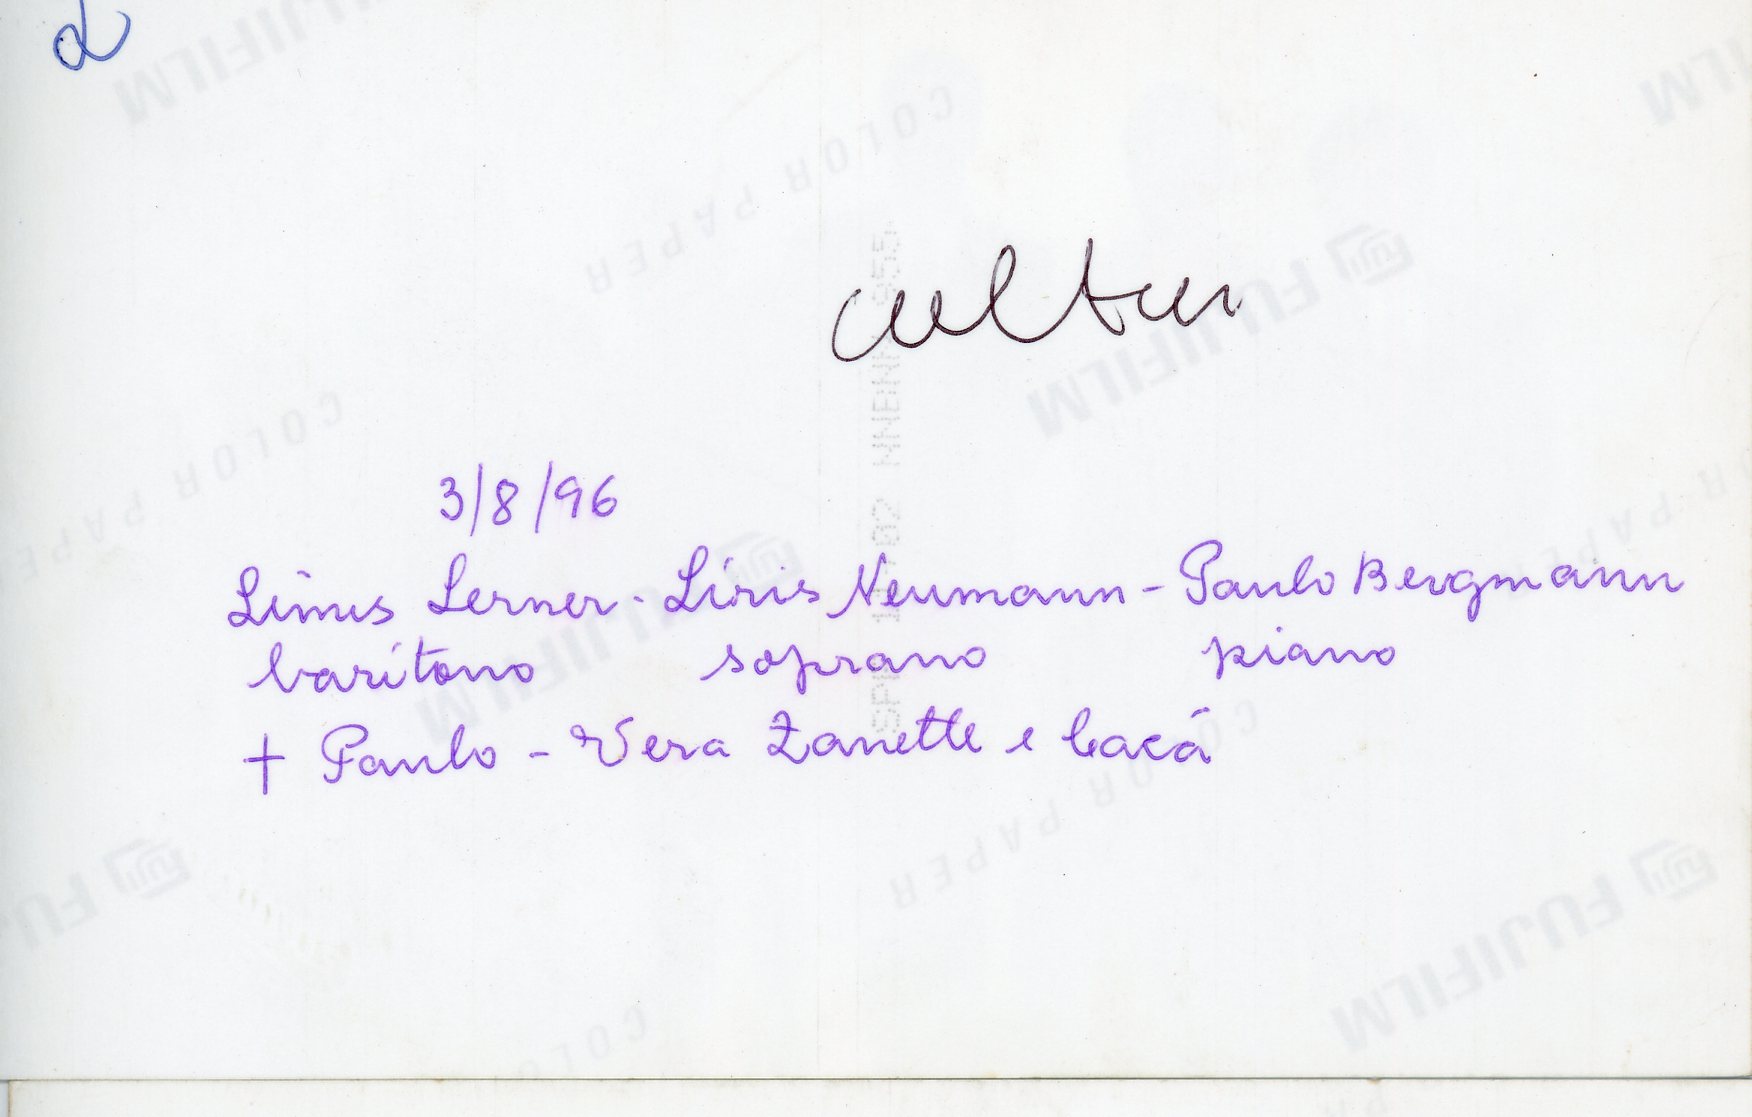 2
cultur
3/8/96
Linus Lerner - Líris Neumann - Paulo Bergmann
barítono soprano piano
+ Paulo - Vera Zanette e Cacá
FUJIFILM
COLOR PAPER